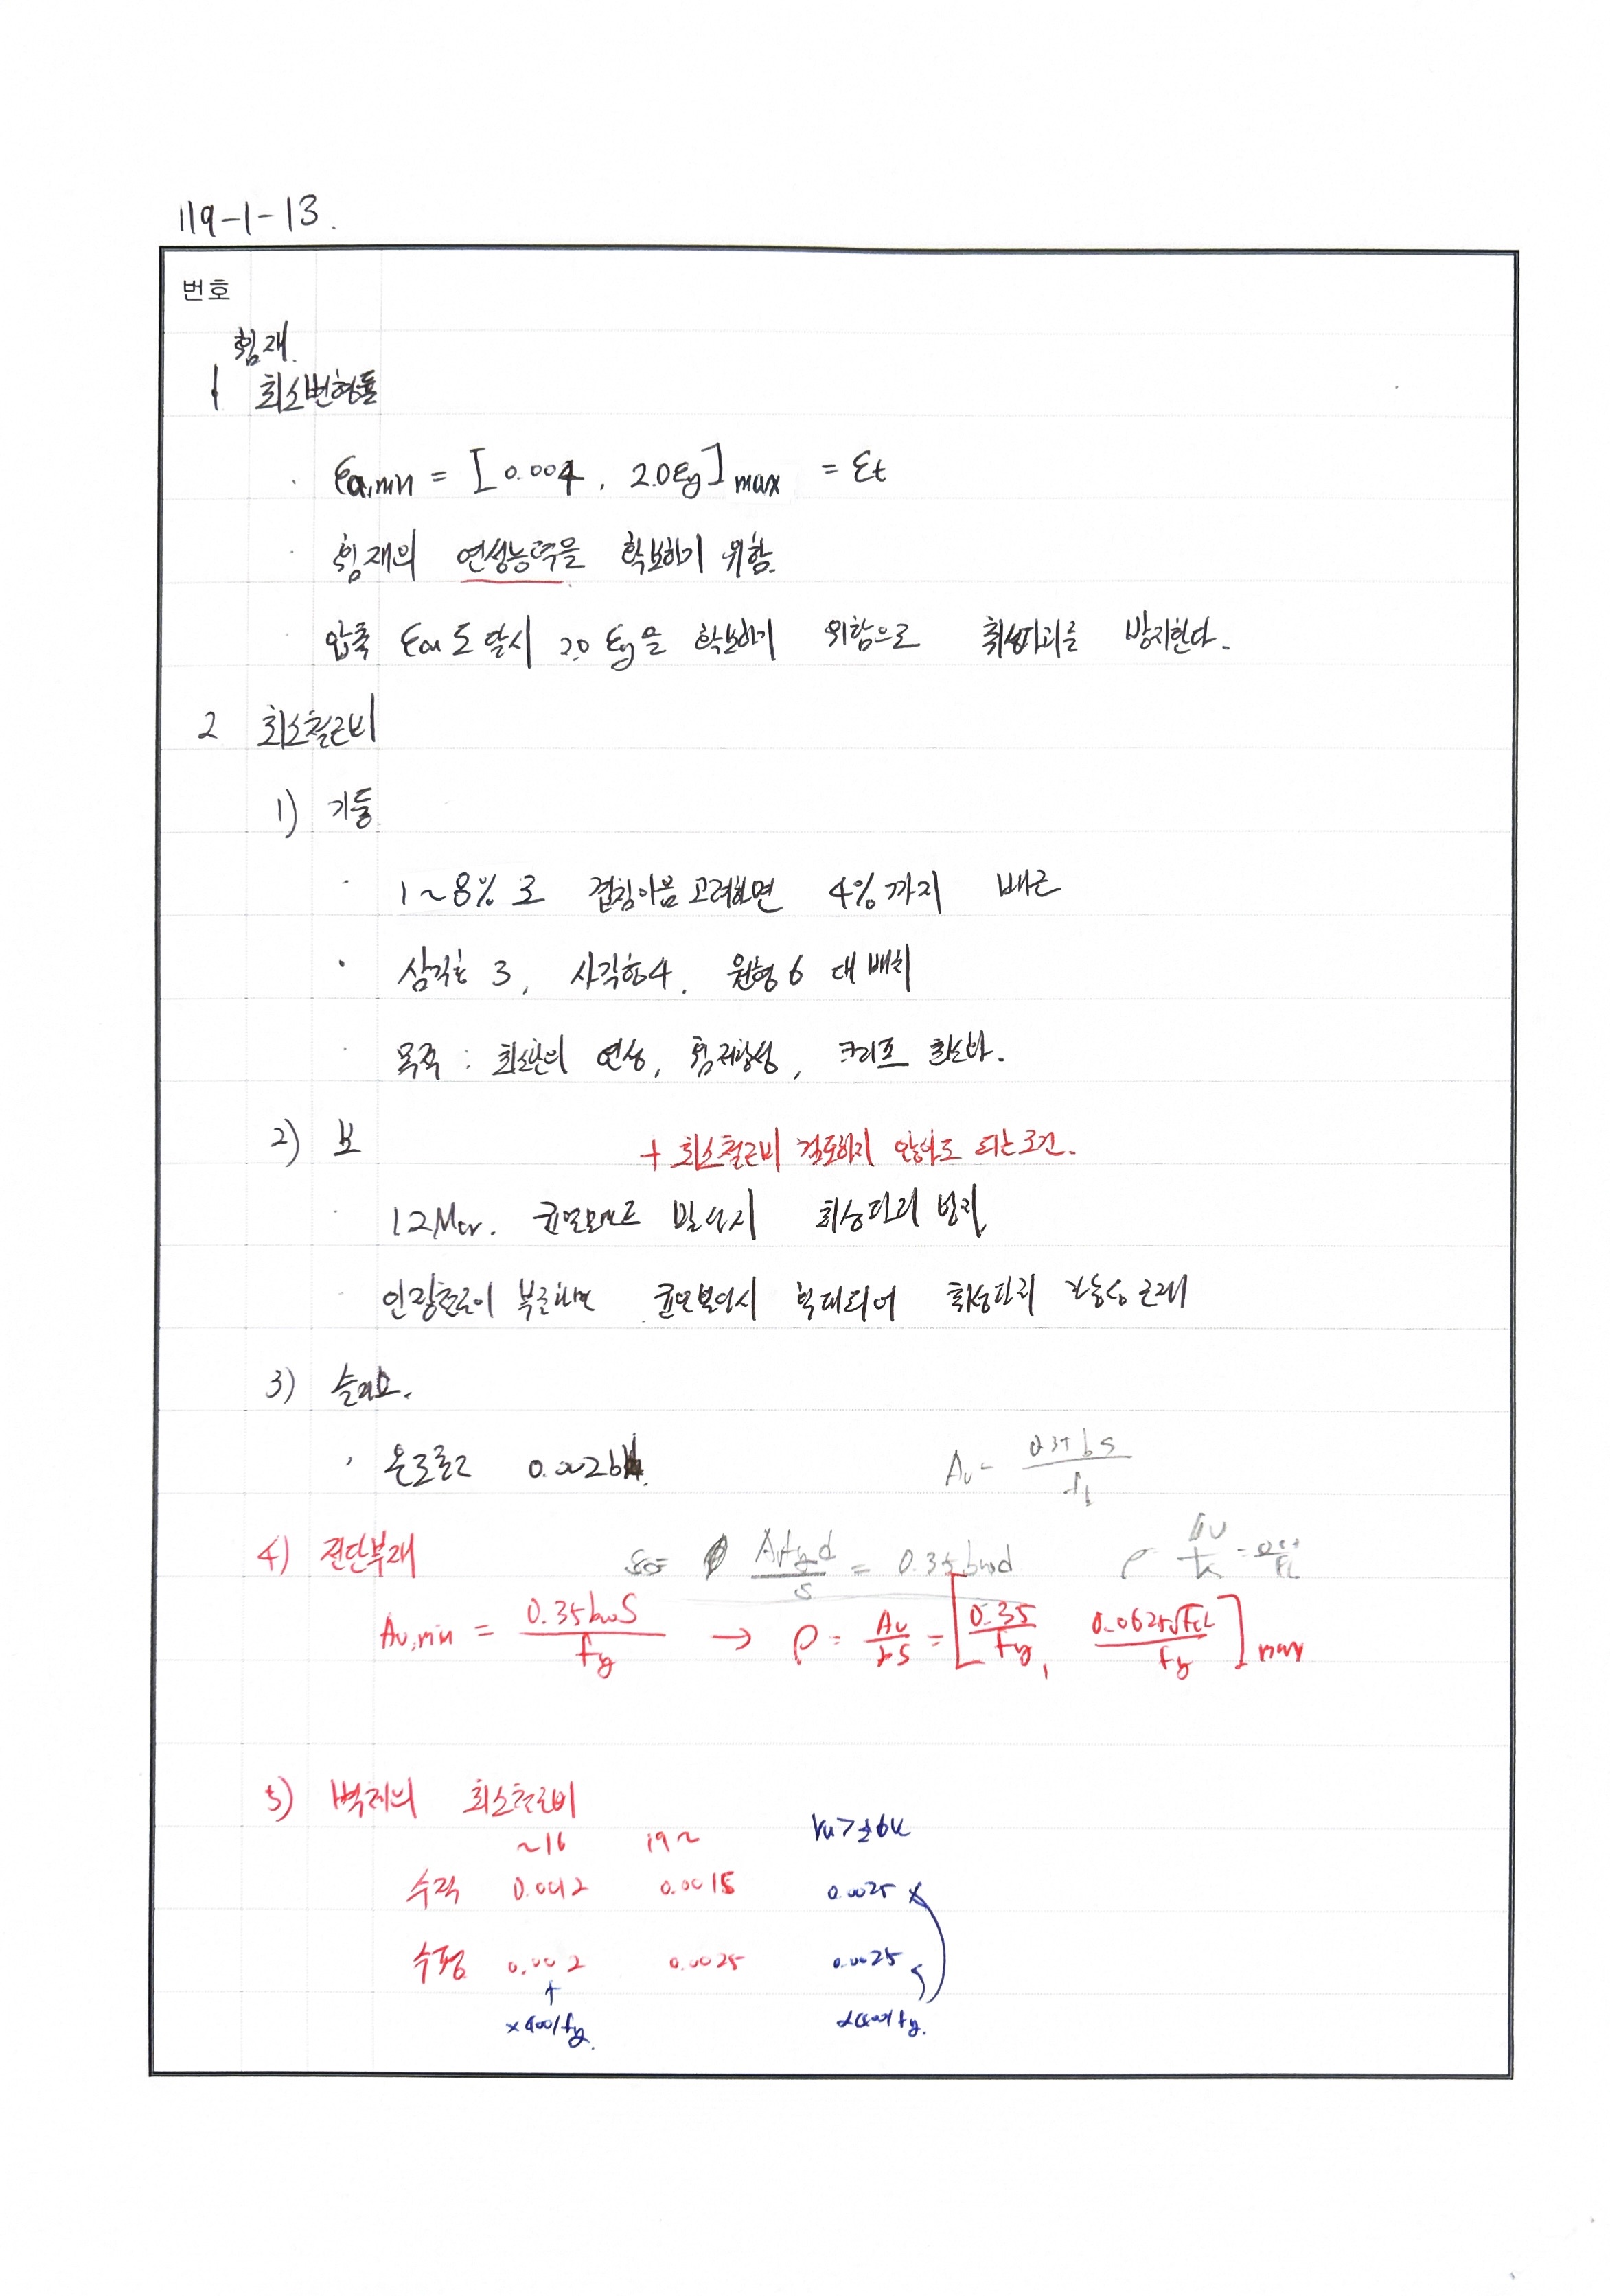 119-1-13.
번호
휨재.
1 최소변형률
· εa,min = [0.004, 2.0εy]max = εt
· 휨재의 연성능력을 확보하기 위함.
· 압축 εcu 도달시 2.0 εy을 확보하기 위함으로 취성파괴를 방지한다.
2 최소철근비
1) 기둥
· 1~8%로 겹침이음 고려하면 4%까지 배근
· 삼각형 3, 사각형4, 원형 6 대 배치
· 목적 : 최소한의 연성, 휨저항성, 크리프 최소화.
2) 보 + 최소철근비 검토하지 않아도 되는 조건.
· 1.2Mcr. 균열모멘트 발생시 취성파괴 방지
· 인장철근이 부족하면 균열발생시 확대되어 취성파괴 가능성 존재
3) 슬래브.
· 온도철근 0.002bh.
Av = 0.35bs / fy
4) 전단부재
Avfyd / s = 0.35bwd
Av,min = 0.35bwS / fy → ρ = Av / bS = [0.35 / fy, 0.0625√fck / fy]max
5) 벽체의 최소철근비
~16 19~ Vu>½φVc
수직 0.0012 0.0015 0.0025
수평 0.002 0.0025 0.0025
×400/fy. ×400/fy.